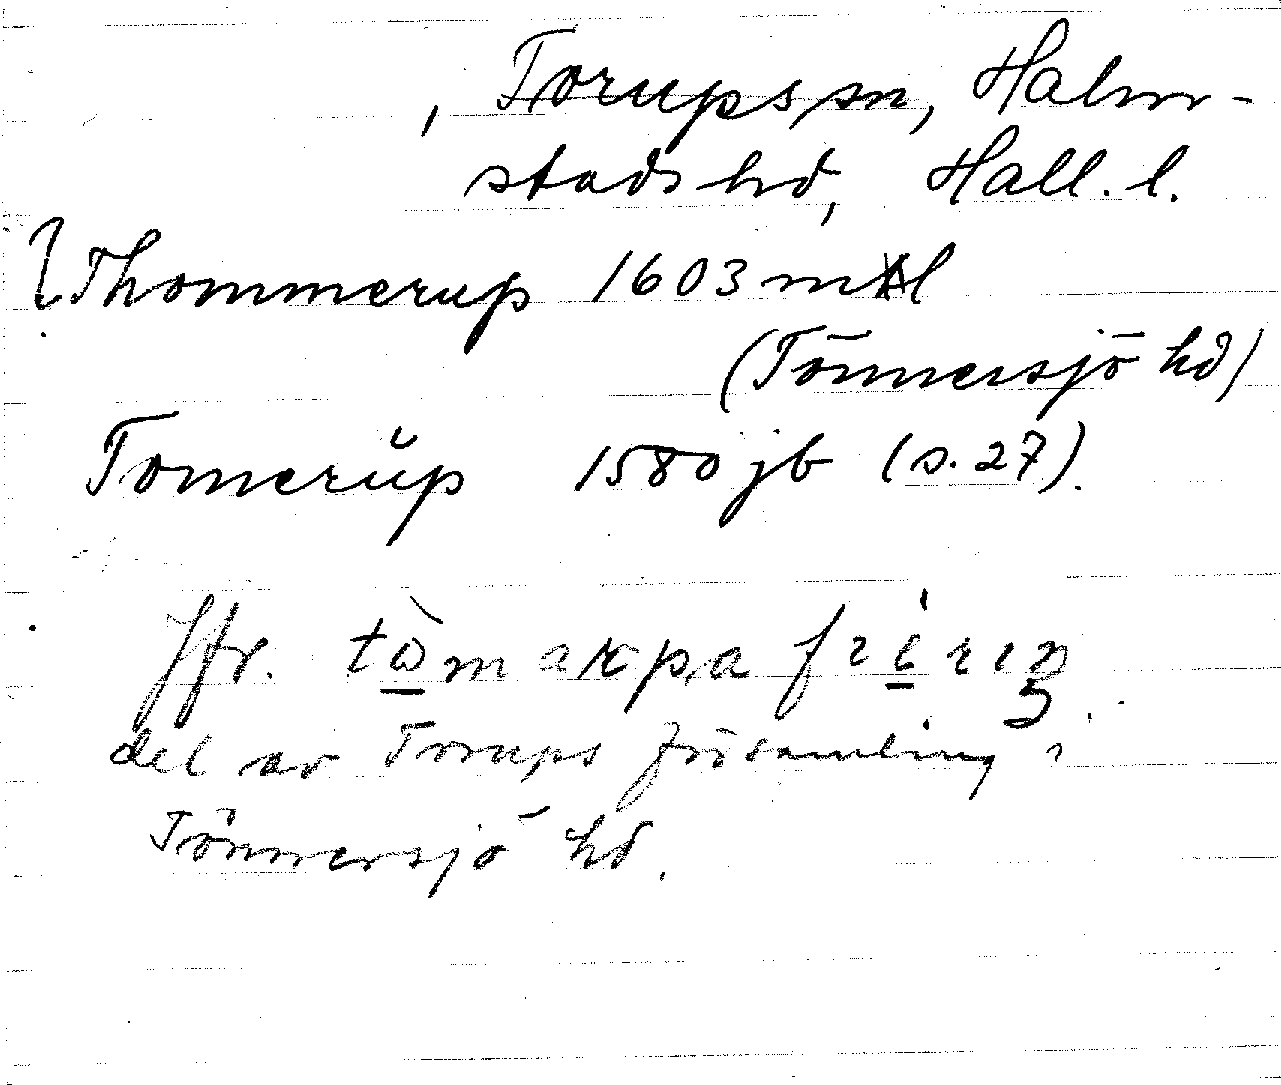 , Torups sn, Halm-
stads hd, Hall. l.
Thommerup 1603 mtl
(Tönnersjö hd)
Tomerŭp 1580 jb (s. 27).
Jfr.
del av Torups församling i
Tönnersjö hd.